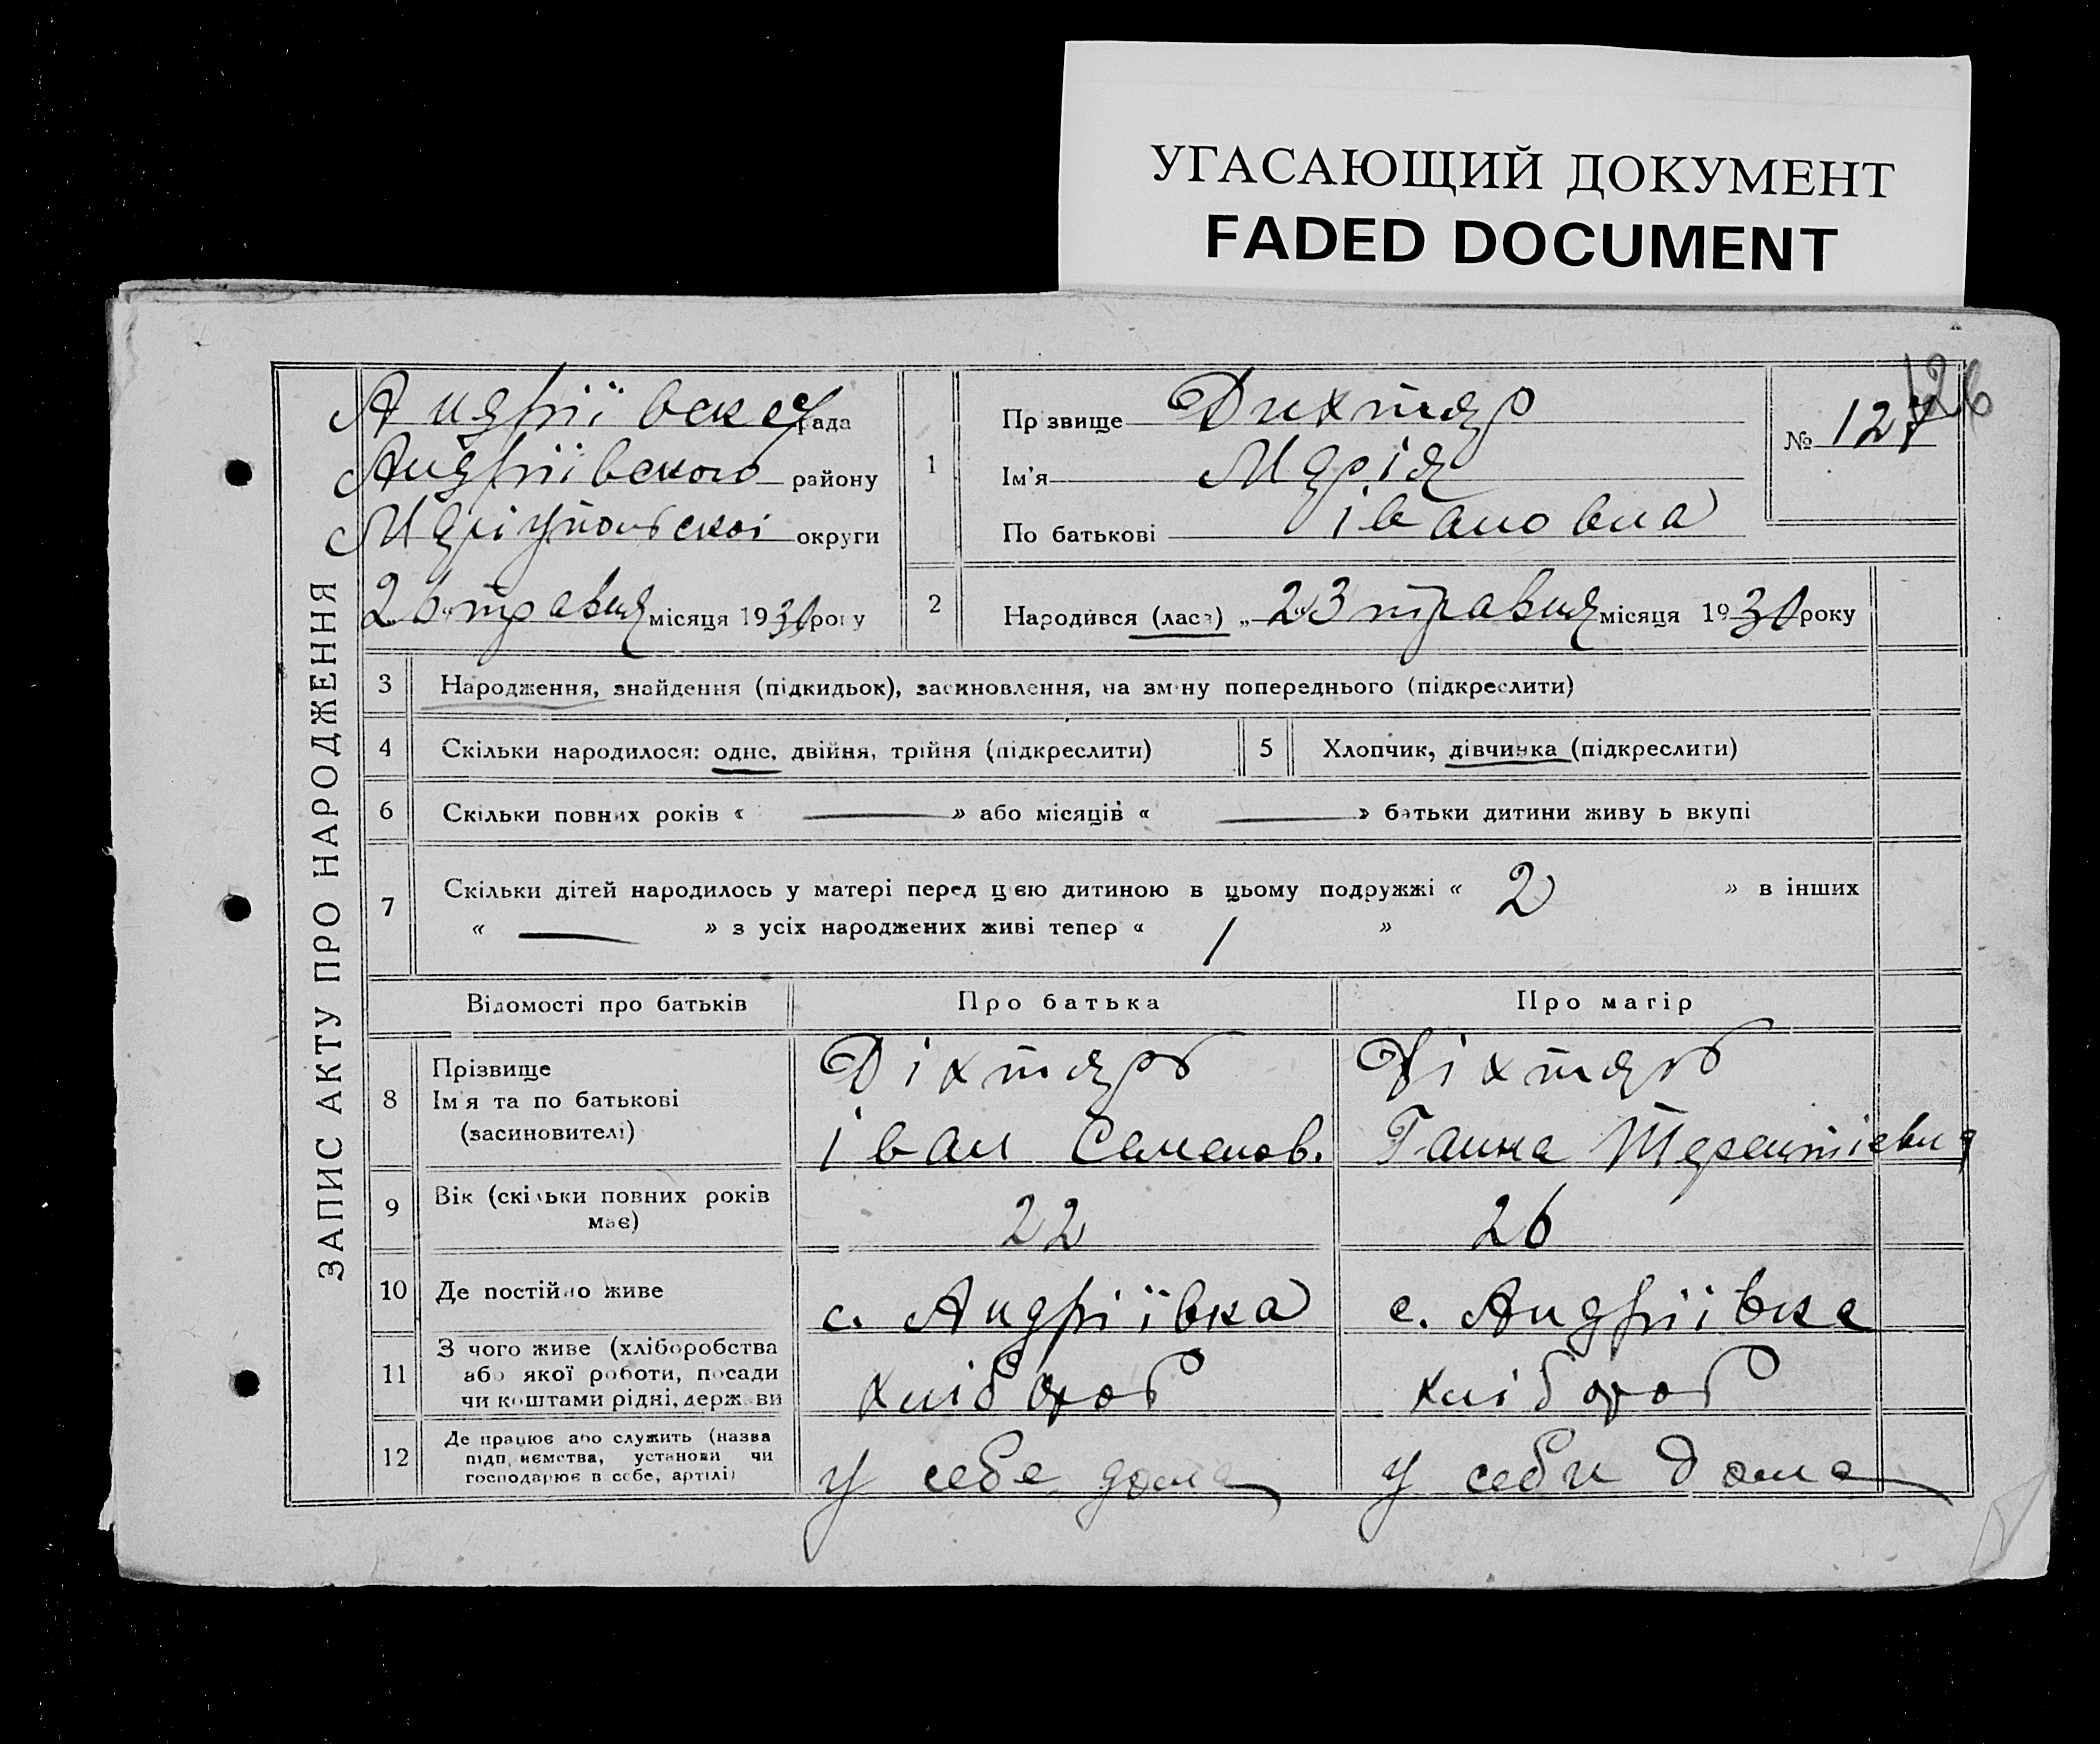 УГАСАЮЩИЙ ДОКУМЕНТ
FADED DOCUMENT
126
ЗАПИС АКТУ ПРО НАРОДЖЕННЯ
Андріївска рада
Андріївского району
Маріупольскоі округи
26 травня місяця 1930 року
1
Прізвище Дихтяр
Ім'я Марія
По батькові івановна
№ 127
2
Народився (лася) „23 травня місяця 1930 року
3 Народження, знайдення (підкидьок), засиновлення, на зміну попереднього (підкреслити)
4 Скільки народилося: одне, двійня, трійня (підкреслити)
5 Хлопчик, дівчинка (підкреслити)
6 Скільки повних років « — » або місяців « — » батьки дитини живуть вкупі
7 Скільки дітей народилось у матері перед цією дитиною в цьому подружжі « 2 » в інших
« — » з усіх народжених живі тепер « 1 »
Відомості про батьків Про батька Про матір
8 Прізвище
Ім'я та по батькові
(засиновителі)
Діхтярь
іван Семенов.
Діхтярь
Ганна Терентіевна
9 Вік (скільки повних років
має)
22
26
10 Де постійно живе
с. Андріївка
с. Андріївка
11 З чого живе (хліборобства
або якої роботи, посади
чи коштами рідні, держави
хлібороб
хлібороб
12 Де працює або служить (назва
підприємства, установи чи
господарює в себе, артілі)
у себе дома
у себи дома